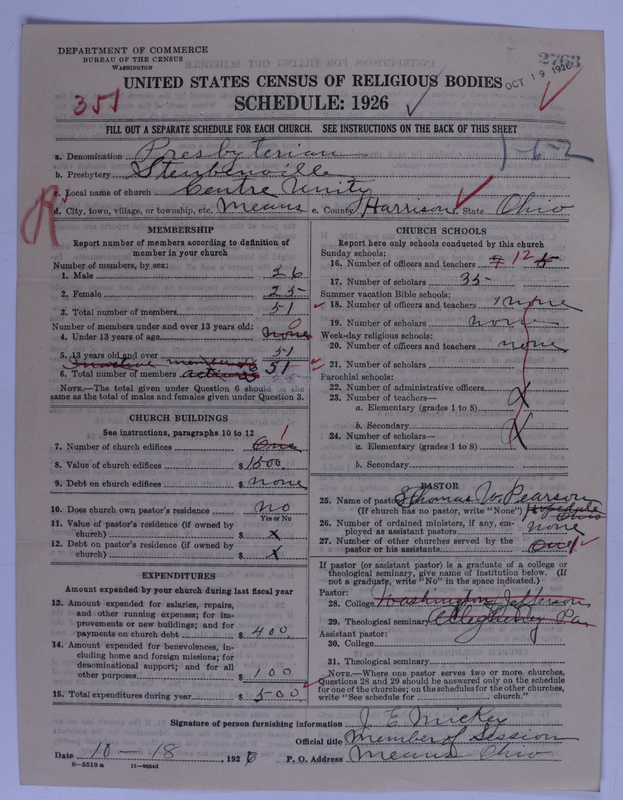 DEPARTMENT OF COMMERCE
BUREAU OF THE CENSUS
WASHINGTON
2763
OCT 19 1926
UNITED STATES CENSUS OF RELIGIOUS BODIES
SCHEDULE: 1926
351
FILL OUT A SEPARATE SCHEDULE FOR EACH CHURCH. SEE INSTRUCTIONS ON THE BACK OF THIS SHEET
1-6-2
a. Denomination Presbyterian
b. Presbytery Steubenville
c. Local name of church Centre Unity
d. City, town, village, or township, etc. Means e. County Harrison f. State Ohio
R
MEMBERSHIP
Report number of members according to definition of
member in your church
Number of members, by sex:
1. Male 26
2. Female 25
3. Total number of members 51
Number of members under and over 13 years old:
4. Under 13 years of age none 0
5. 13 years old and over 51
Inactive members
6. Total number of members active 51
NOTE.—The total given under Question 6 should be the
same as the total of males and females given under Question 3.
CHURCH BUILDINGS
See instructions, paragraphs 10 to 12
7. Number of church edifices One 1
8. Value of church edifices $ 1500.
9. Debt on church edifices $ none
10. Does church own pastor's residence no
Yes or No
11. Value of pastor's residence (if owned by
church) $ x
12. Debt on pastor's residence (if owned by
church) $ x
EXPENDITURES
Amount expended by your church during last fiscal year
13. Amount expended for salaries, repairs,
and other running expenses; for im-
provements or new buildings; and for
payments on church debt $ 400
14. Amount expended for benevolences, in-
cluding home and foreign missions; for
denominational support; and for all
other purposes $ 100
15. Total expenditures during year $ 500
CHURCH SCHOOLS
Report here only schools conducted by this church
Sunday schools:
16. Number of officers and teachers 12 5
17. Number of scholars 35
Summer vacation Bible schools:
18. Number of officers and teachers none
19. Number of scholars none
Week-day religious schools:
20. Number of officers and teachers none
21. Number of scholars
Parochial schools:
22. Number of administrative officers
23. Number of teachers—
a. Elementary (grades 1 to 8) x
b. Secondary
24. Number of scholars—
a. Elementary (grades 1 to 8) x
b. Secondary
PASTOR
25. Name of pastor Thomas W. Pearson
(If church has no pastor, write "None") Hopedale
Ohio
26. Number of ordained ministers, if any, em-
ployed as assistant pastors none
27. Number of other churches served by the
pastor or his assistants One 1
If pastor (or assistant pastor) is a graduate of a college or
theological seminary, give name of institution below. (If
not a graduate, write "No" in the space indicated.)
Pastor:
28. College Washington Jefferson
29. Theological seminary Allegheny Pa
Assistant pastor:
30. College
31. Theological seminary
NOTE.—Where one pastor serves two or more churches,
Questions 28 and 29 should be answered only on the schedule
for one of the churches; on the schedules for the other churches,
write "See schedule for church."
Signature of person furnishing information J. E. Mickey
Official title Member of Session
Date 10-18, 1926 P. O. Address Means Ohio
8-5518 a